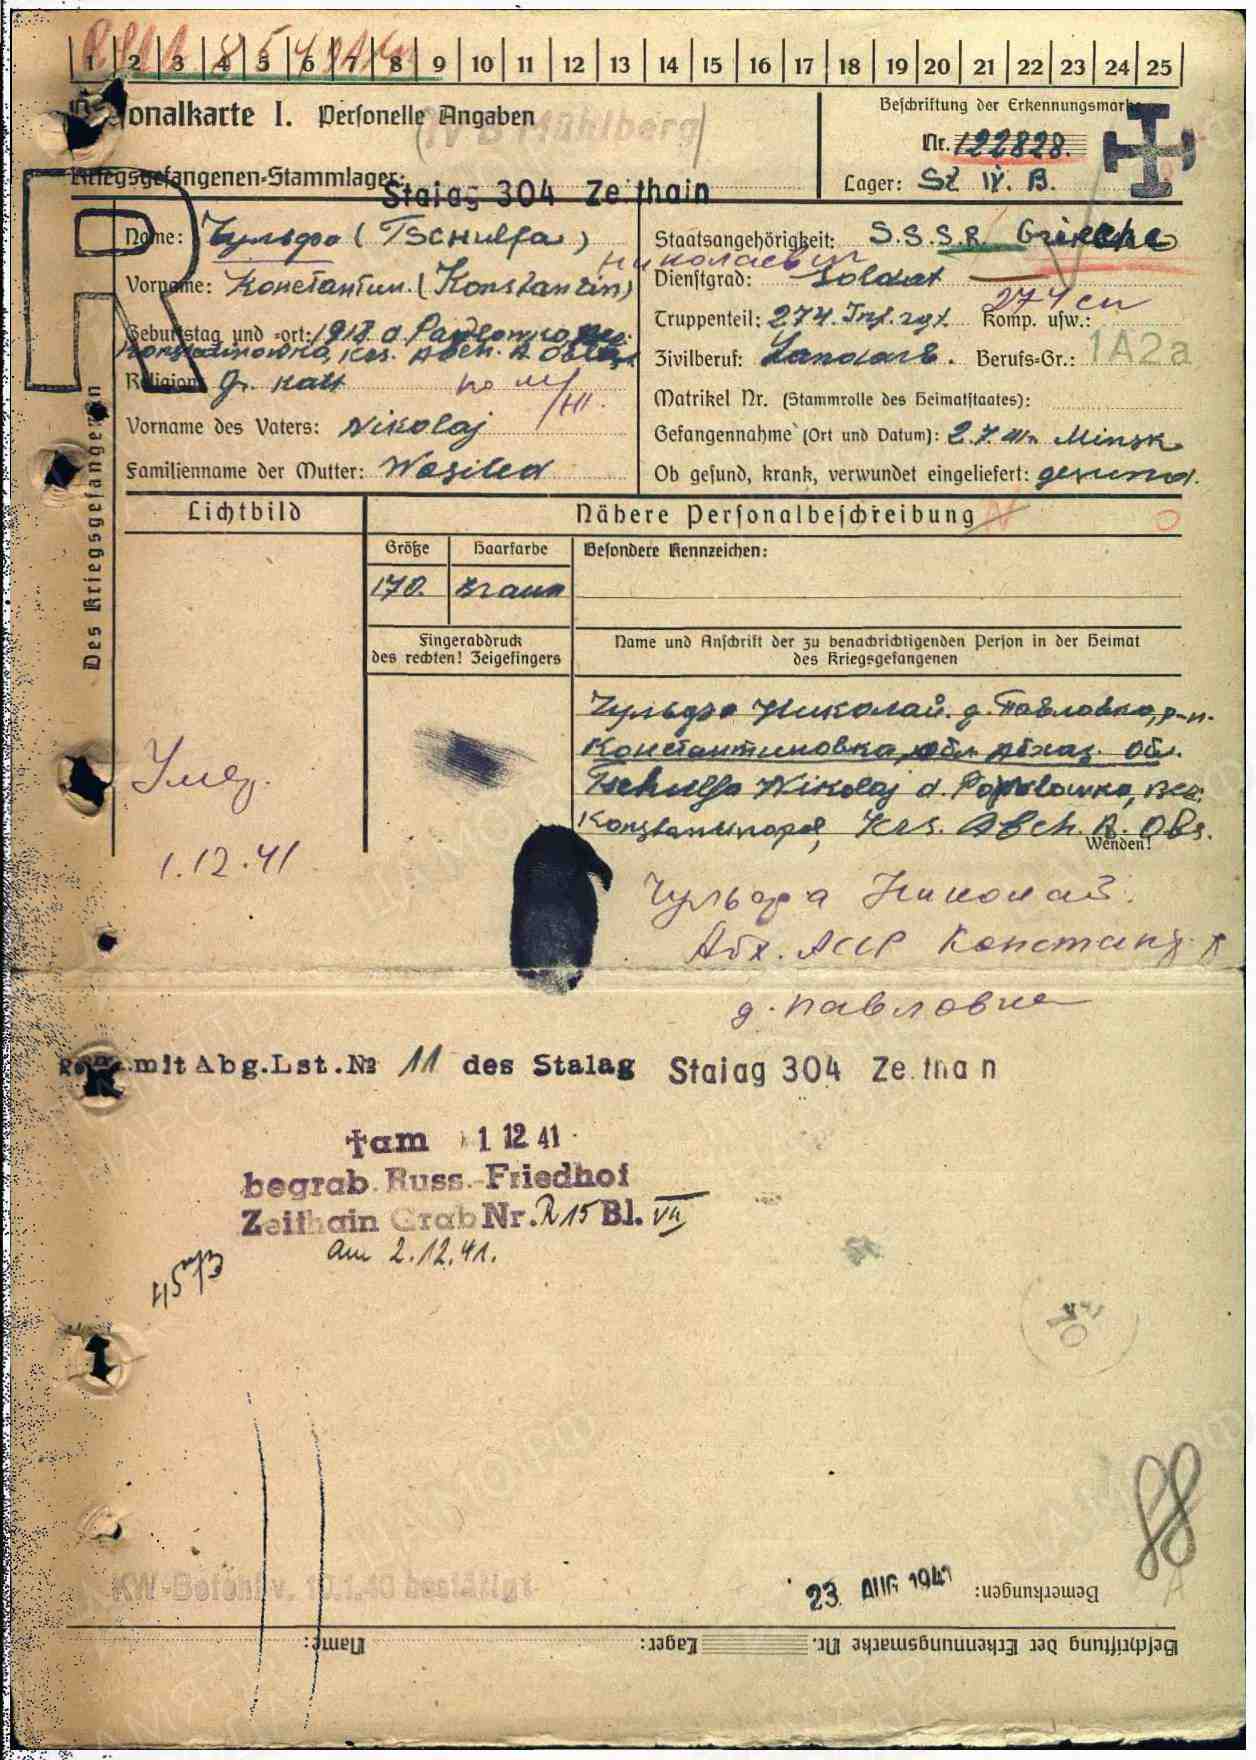 1 2 3 4 5 6 7 8 9 10 11 12 13 14 15 16 17 18 19 20 21 22 23 24 25
Personalkarte I. Personelle Angaben
(IV B Mühlberg)
Beschriftung der Erkennungsmarke
Nr. 122828.
Kriegsgefangenen-Stammlager: Stalag 304 Zeithain
Lager: St IV. B.
R
Des Kriegsgefangenen
Name: Чульфа (Tschulfa)
Николаевич
Vorname: Константин. (Konstantin)
Geburtstag und -ort: 1918 d. Pawlowka,
Konstantinowka, Krs. Abch. A. Obl.
Religion: Gr. Kath
Vorname des Vaters: Nikolaj
Familienname der Mutter: Wasiled
Staatsangehörigkeit: S.S.S.R. Grieche
Dienstgrad: Soldat
Truppenteil: 274. Inf. rgt. Komp. usw.:
274 сп
Zivilberuf: Landarb. Berufs-Gr.: 1A2a
Matrikel Nr. (Stammrolle des Heimatstaates):
Gefangennahme (Ort und Datum): 2.7.41. Minsk
Ob gesund, krank, verwundet eingeliefert: gesund.
Lichtbild
Nähere Personalbeschreibung
Größe Haarfarbe Besondere Kennzeichen:
170. Braun
Fingerabdruck
des rechten! Zeigefingers
Name und Anschrift der zu benachrichtigenden Person in der Heimat
des Kriegsgefangenen
Чульфа Николай. д. Павловка, р-н.
Константиновка, обл. Абхаз. Обл.
Tschulfa Nikolaj d. Pawlowka,
Krs. Abch. A. Obl.
Wenden!
Умер.
1.12.41
Чульфа Николай.
Абх. АССР
д. Павловка
mit Abg.Lst.№ 11 des Stalag Stalag 304 Zeithain
†am 1 12 41
begrab. Russ.-Friedhof
Zeithain Grab Nr. R 15 Bl. VII
am 2.12.41.
KW-Bef. bestätigt
23. AUG 1941
Bemerkungen:
Beschriftung der Erkennungsmarke Nr. Lager: Name: